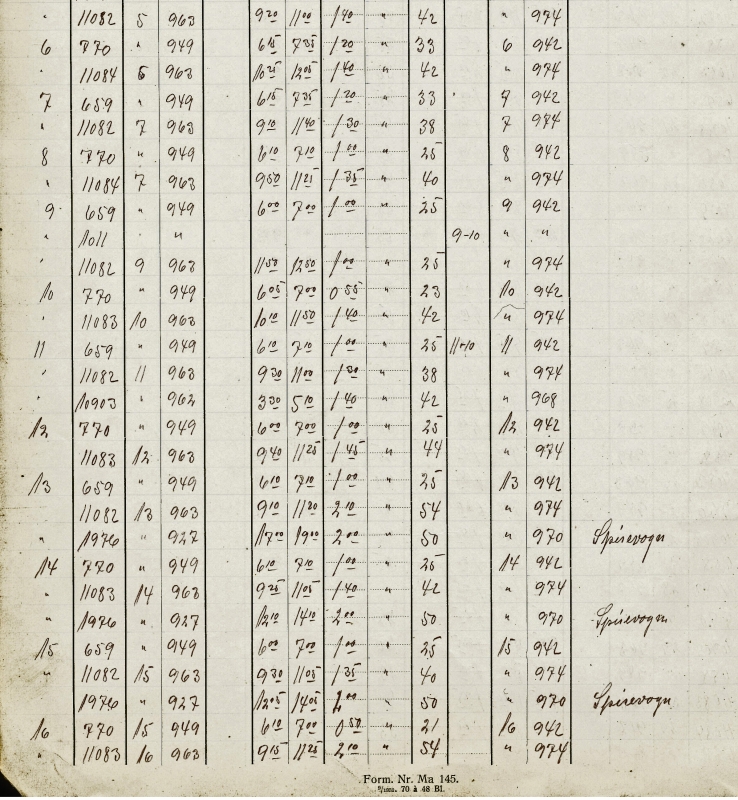 " 11082 5 963 9 20 11 00 1 40 " 42 " 974
6 770 " 949 6 15 7 35 1 20 " 33 6 942
" 11084 6 963 10 25 12 05 1 40 " 42 " 974
7 659 " 949 6 15 7 35 1 20 " 33 7 942
" 11082 7 963 9 10 11 40 1 30 " 38 7 974
8 770 " 949 6 10 7 10 1 00 " 25 8 942
" 11084 7 963 9 50 11 25 1 35 " 40 " 974
9 659 " 949 6 00 7 00 1 00 " 25 9 942
" 1011 " " 9-10 " "
" 11082 9 963 11 50 12 50 1 00 " 25 " 974
10 770 " 949 6 05 7 00 0 55 " 23 10 942
" 11083 10 963 10 10 11 50 1 40 " 42 " 974
11 659 " 949 6 10 7 10 1 00 " 25 11-10 11 942
" 11082 11 963 9 30 11 00 1 30 " 38 " 974
" 10903 " 962 3 30 5 10 1 40 " 42 " 968
12 770 " 949 6 00 7 00 1 00 " 25 12 942
11083 12 963 9 40 11 25 1 45 " 44 " 974
13 659 " 949 6 10 7 10 1 00 " 25 13 942
11082 13 963 9 10 11 20 2 10 " 54 " 974
" 1976 " 927 17 00 19 00 2 00 " 50 " 970 Spisevogn
14 770 " 949 6 10 7 10 1 00 " 25 14 942
" 11083 14 963 9 25 11 05 1 40 " 42 " 974
" 1976 " 927 12 10 14 10 2 00 " 50 " 970 Spisevogn
15 659 " 949 6 00 7 00 1 00 " 25 15 942
" 11082 15 963 9 30 11 05 1 35 " 40 " 974
1976 " 927 12 05 14 05 2 00 " 50 " 970 Spisevogn
16 770 15 949 6 10 7 00 0 50 " 21 16 942
" 11083 16 963 9 15 11 25 2 10 " 54 " 974
Form. Nr. Ma 145.
70 à 48 Bl.